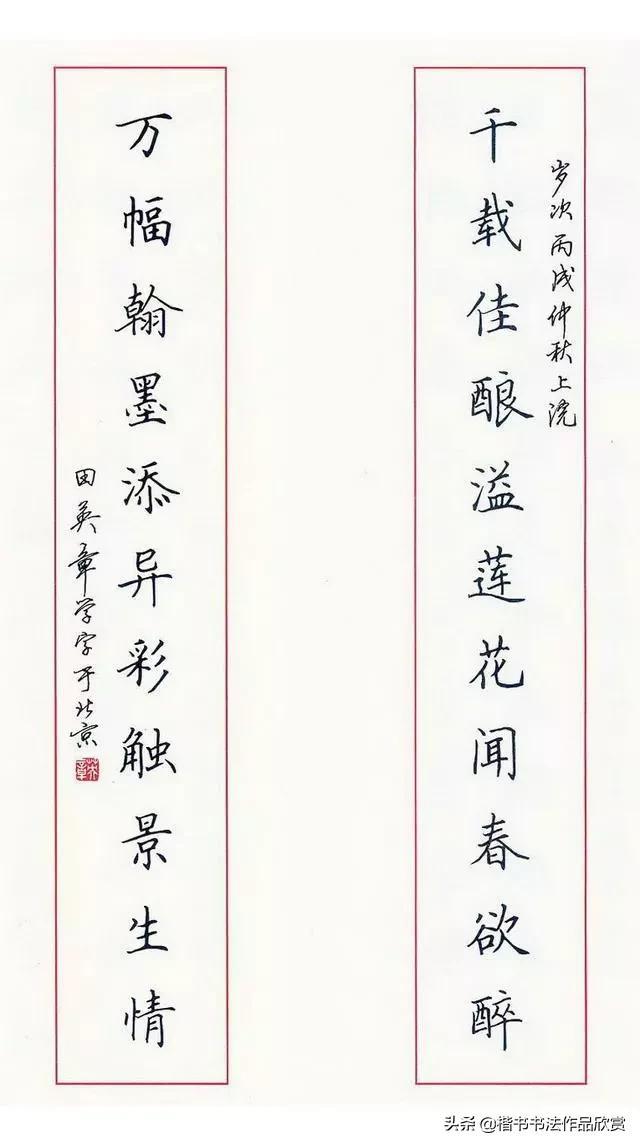 千载佳酿溢莲花闻春欲醉
岁次丙戌仲秋上浣
万幅翰墨添异彩触景生情
田英章学字于北京
英章
头条 @楷书书法作品欣赏